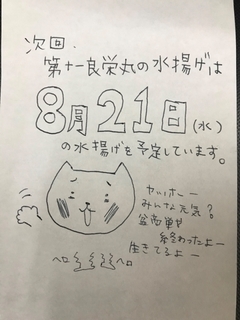 次回、
第十一良栄丸の水揚げは
8月21日(水)
の水揚げを予定しています。
ヤッホー
みんな元気?
盆恋単や
終わったよー
生きてるよー
ヘロ ヘロ